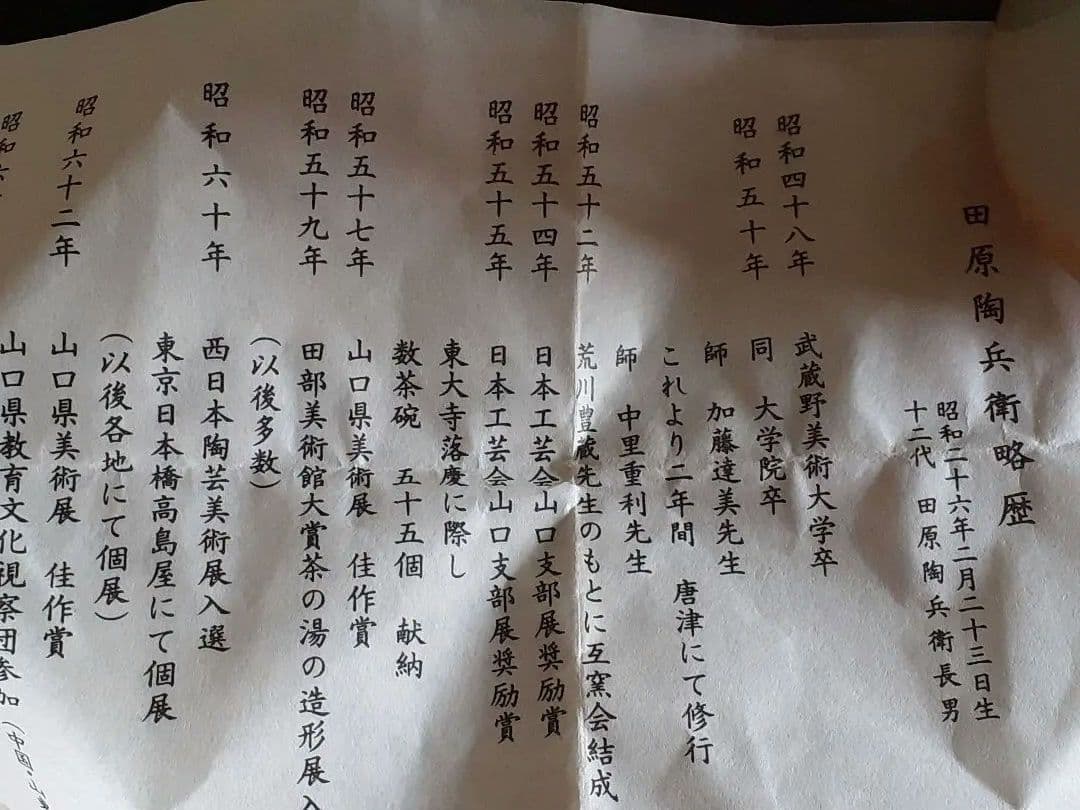 田原陶兵衛略歴
昭和二十六年二月二十三日生
十二代 田原陶兵衛長男
昭和四十八年 武蔵野美術大学卒
昭和五十年 同 大学院卒
師 加藤達美先生
これより二年間 唐津にて修行
師 中里重利先生
昭和五十二年 荒川豊蔵先生のもとに互窯会結成
昭和五十四年 日本工芸会山口支部展奨励賞
昭和五十五年 日本工芸会山口支部展奨励賞
東大寺落慶に際し
数茶碗 五十五個 献納
昭和五十七年 山口県美術展 佳作賞
昭和五十九年 田部美術館大賞茶の湯の造形展入
(以後多数)
昭和六十年 西日本陶芸美術展入選
東京日本橋高島屋にて個展
(以後各地にて個展)
昭和六十二年 山口県美術展 佳作賞
昭和六 山口県教育文化視察団参加(中国・山